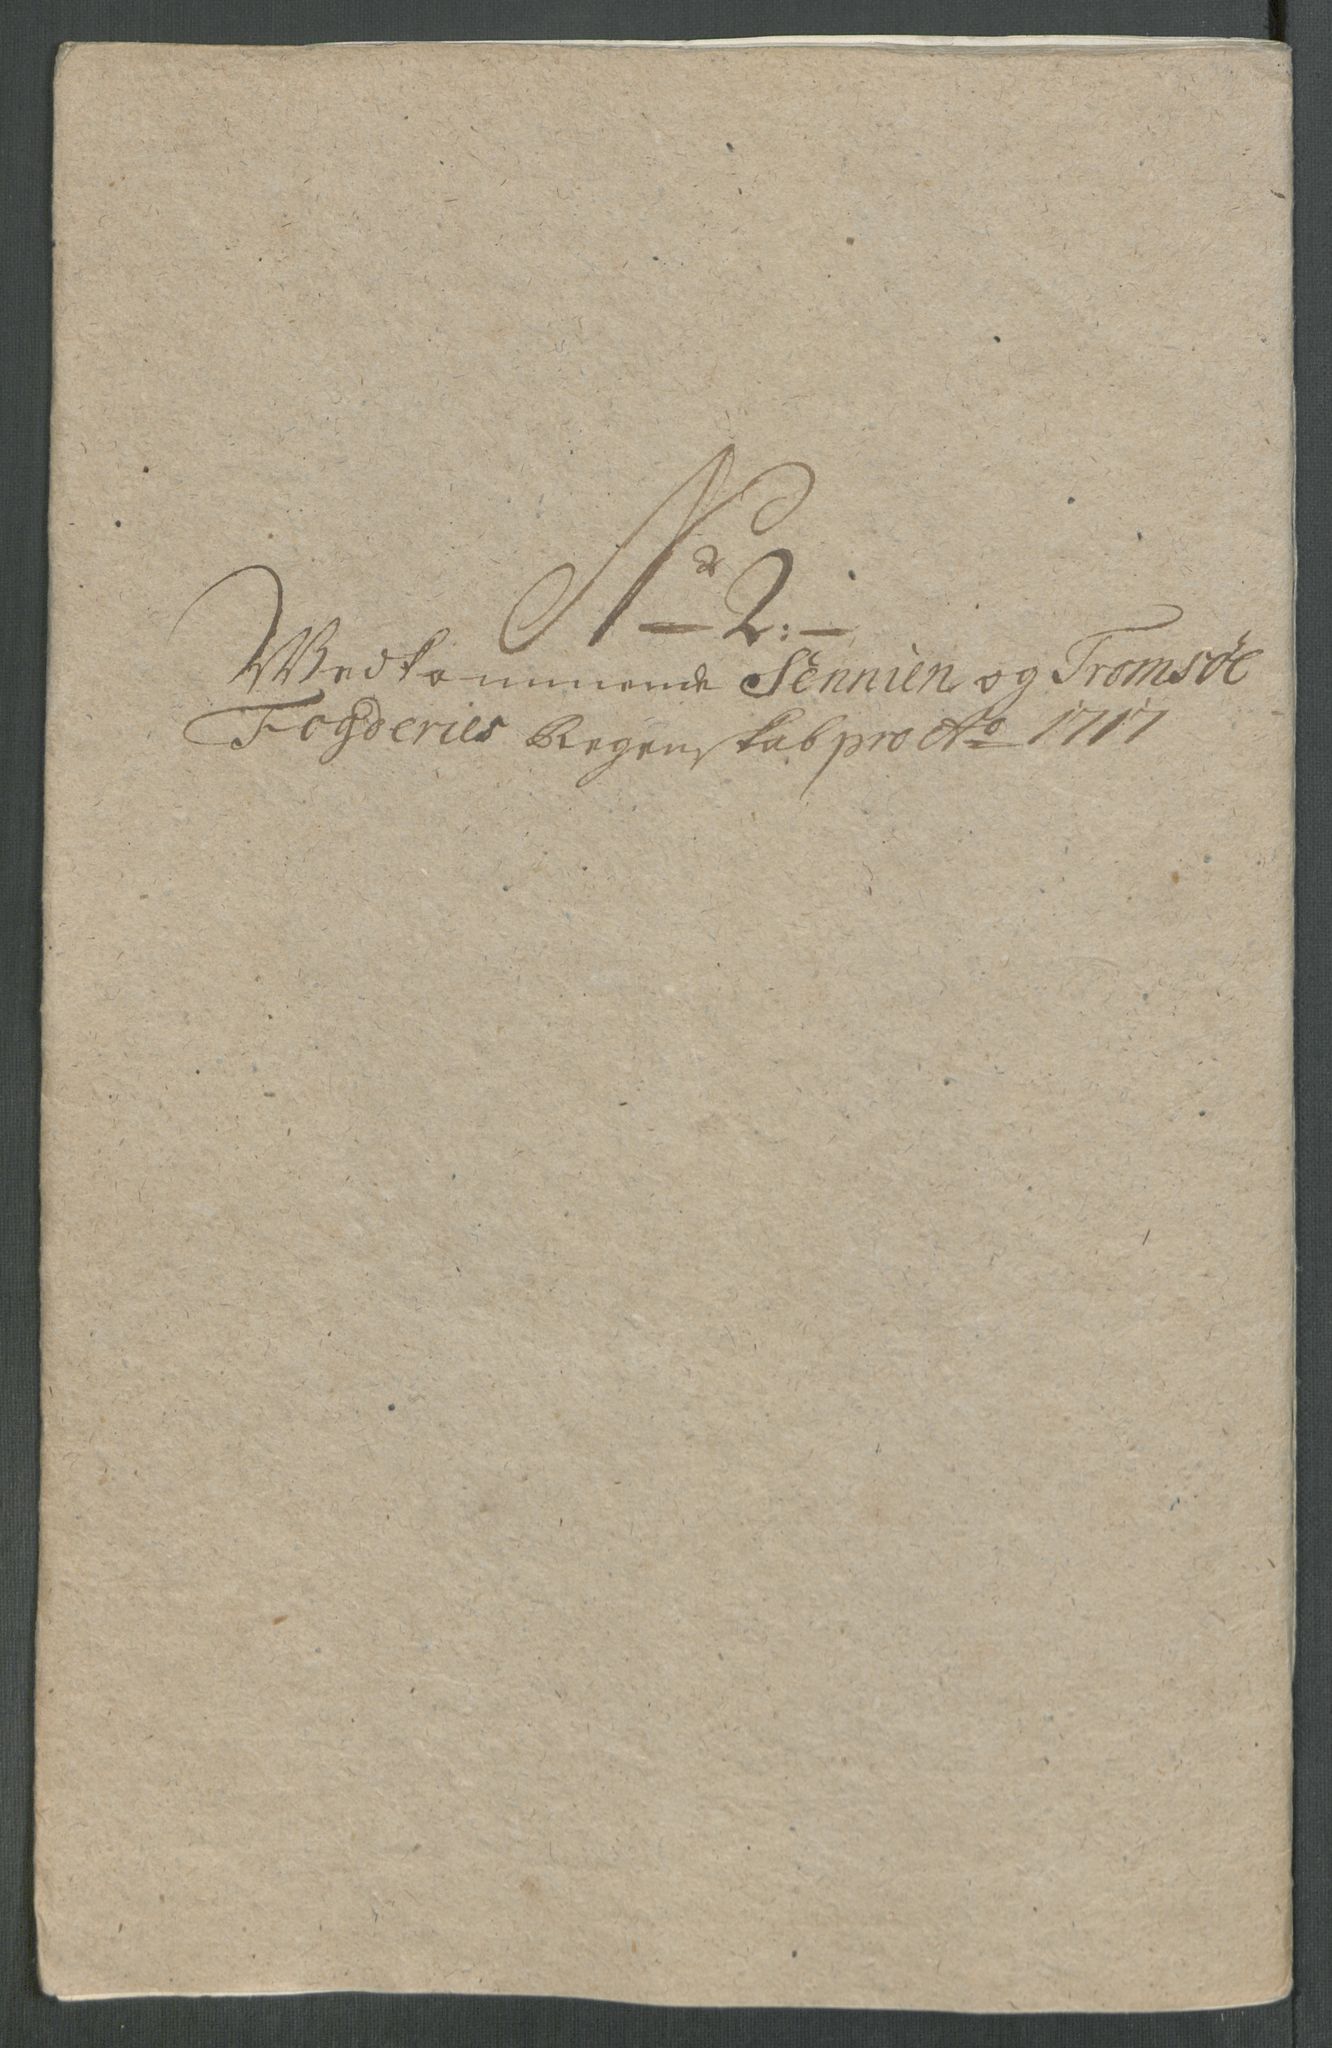 Nr 2:
Vedkommende Sennien og Tromsøe
Fogderies Regenskab pro Ao 1717